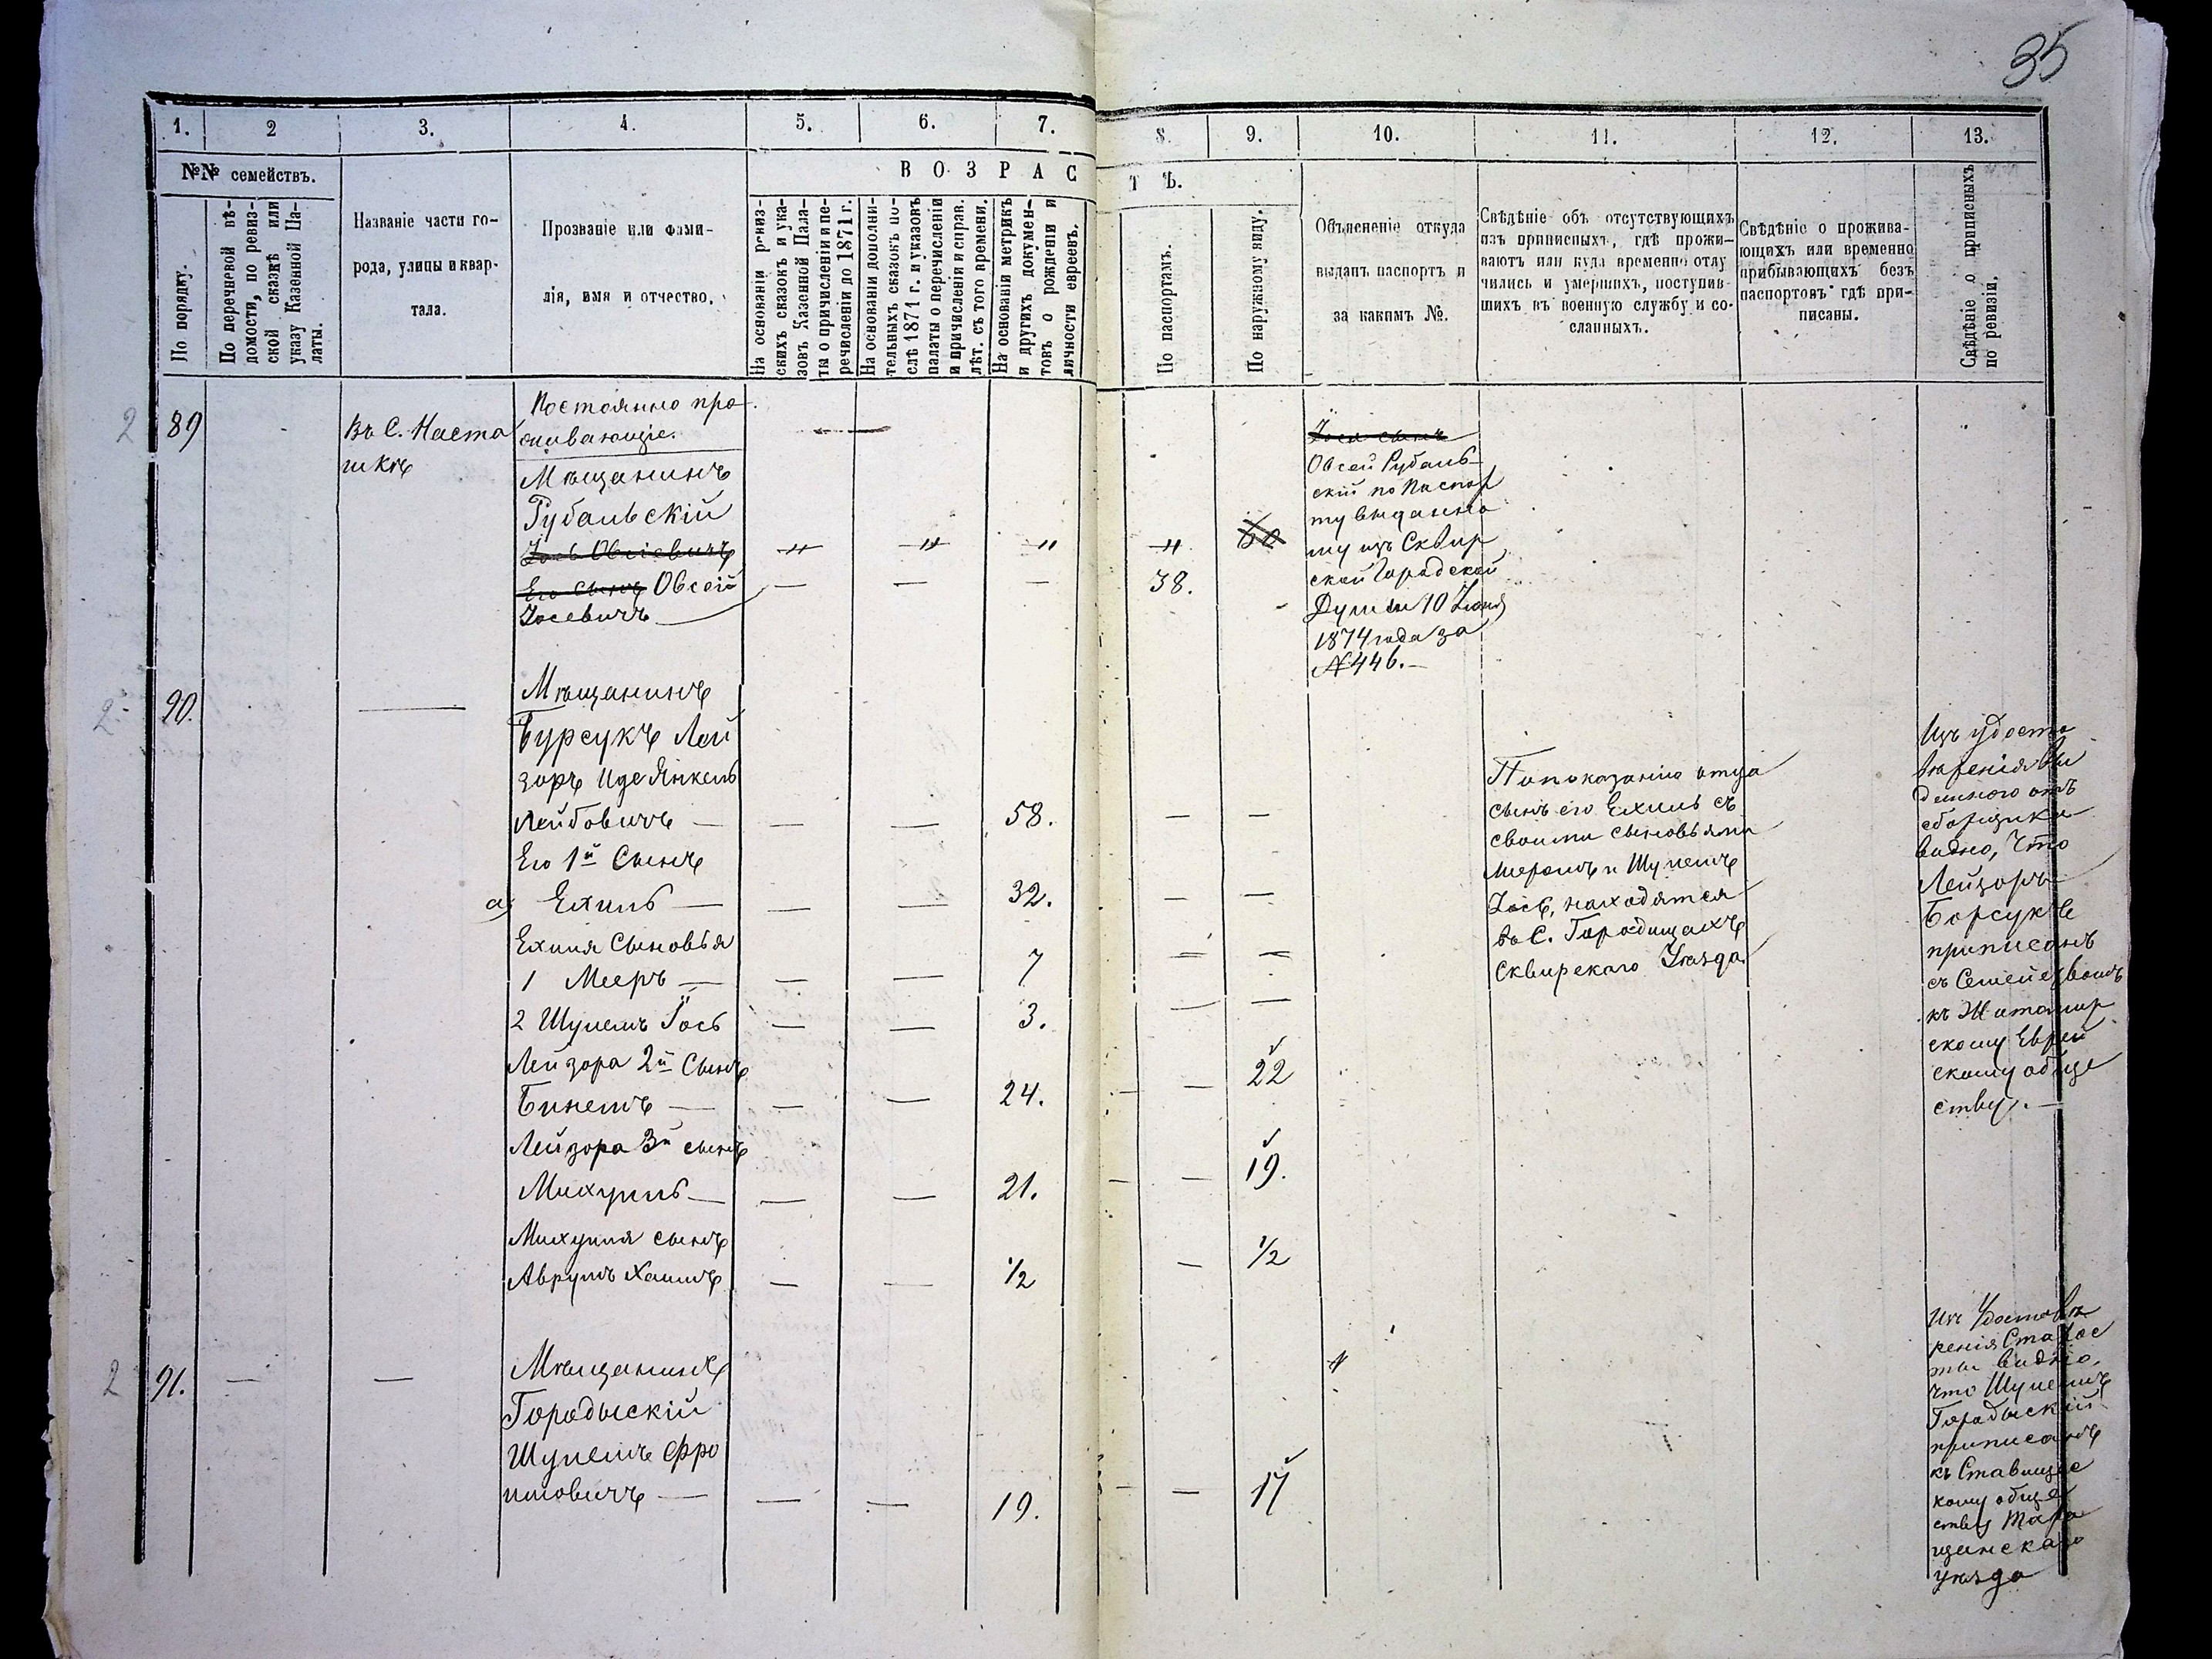 35
1. 2 3. 4. 5. 6. 7. 8. 9. 10. 11. 12. 13.
№№ семействъ.
В О З Р А С Т Ѣ.
По порядку.
По перечневой вѣ-
домости, по ревиз-
ской сказкѣ или
указу Казенной Па-
латы.
Названіе части го-
рода, улицы и квар-
тала.
Прозваніе или фами-
лія, имя и отчество.
На основаніи ревиз-
скихъ сказокъ и ука-
зовъ Казенной Пала-
ты о причисленіи и пе-
речисленіи до 1871 г.
На основаніи дополни-
тельныхъ сказокъ по-
слѣ 1871 г. и указовъ
палаты о перечисленіи
и причисленіи и справ.
лѣт. съ того времени.
На основаніи метрикъ
и другихъ докумен-
товъ о рожденіи и
личности евреевъ.
По паспортамъ.
По наружному виду.
Объясненіе откуда
выданъ паспортъ и
за какимъ №.
Свѣдѣніе объ отсутствующихъ
изъ приписныхъ, гдѣ прожи-
ваютъ или куда временно отлу
чились и умершихъ, поступив-
шихъ въ военную службу и со-
сланныхъ.
Свѣдѣніе о прожива-
ющихъ или временно
прибывающихъ безъ
паспортовъ гдѣ при-
писаны.
Свѣдѣніе о приписныхъ
по ревизіи.
2 89
Въ С. Наста
шкѣ
Постоянно про
живающіе.
Мѣщанинъ
Рубальскій
Іось Овсіевичъ
Его сынъ Овсей
Іосевичъ
38.
Іося сынъ
Овсей Рубаль
скій по паспор
ту выданно
му изъ Сквир
ской Городской
Думы 10 Іюня
1874 года за
№446.
2 90.
Мѣщанинъ
Бурсукъ Лей
зоръ Иде Янкель
Лейбовичъ — — — 58. — —
Его 1й Сынъ
а) Ехиль — — — 32. — —
Ехиля Сыновья
1 Мееръ — — — 7 — —
2 Шулемъ Іось — — 3. — —
Лейзора 2й Сынъ
Бинемъ — — — 24. — 22
Лейзора 3й сынъ
Михуиль — — — 21. — 19.
Михуиля сынъ
Аврумъ Хаимъ — — 1/2 — 1/2
По показанію отца
сынъ его Ехиль съ
своими сыновьями
Мееромъ и Шулемъ
Іось, находятся
въ С. Городищахъ
Сквирскаго Уѣзда.
Изъ удосто
вѣренія Вы
даннаго отъ
сборщика
видно, что
Лейзоръ
Борсукъ
приписанъ
съ Семействомъ
къ Житомир
скому Еврей
скому обще
ству.
2 91. — —
Мѣщанинъ
Городыскій
Шулемъ Фро
имовичъ — — — 19. — 17
Изъ Удостовѣ
ренія Старос
ты видно,
что Шулемъ
Городыскій
приписанъ
къ Ставищес
кому обще
ству Тара
щанскаго
уѣзда